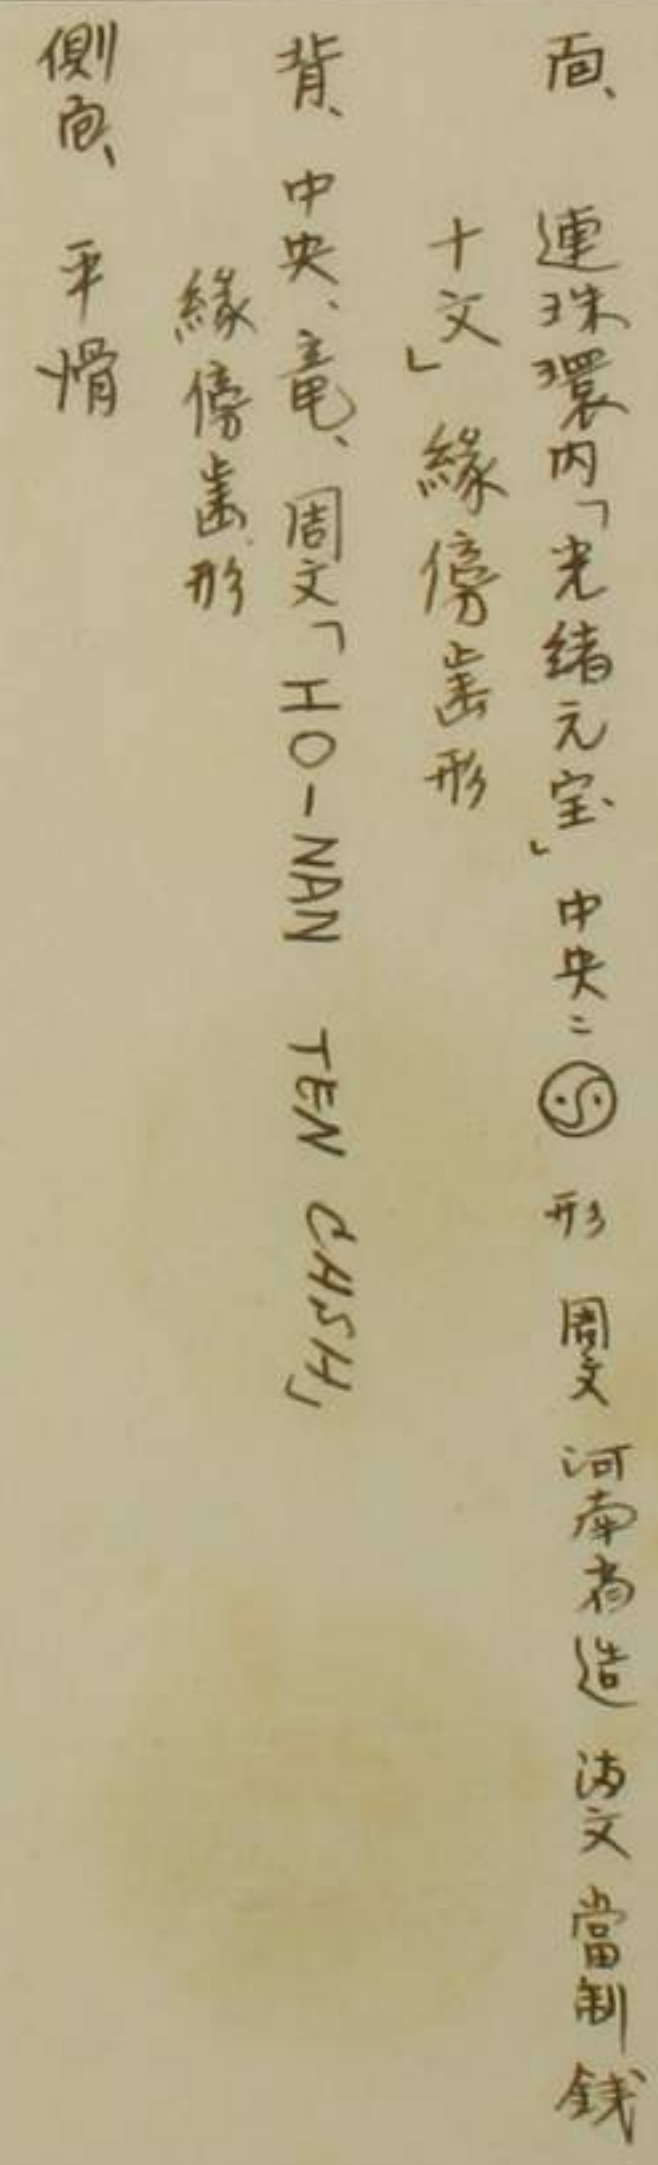 面、連珠環内「光緒元宝」中央ニ☯形 周文 河南省造 満文 當制銭
十文」縁傍歯形
背、中央、竜、周文「HO-NAN TEN CASH」
縁傍歯形
側面、平滑